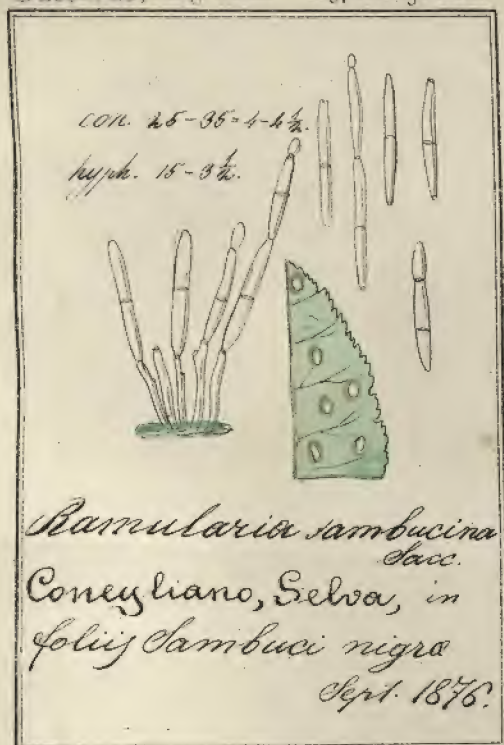 con. 25-35=4-4½.
hyph. 15-3½.
Ramularia sambucina
Sacc.
Conegliano, Selva, in
foliis Sambuci nigræ
Sept. 1876.